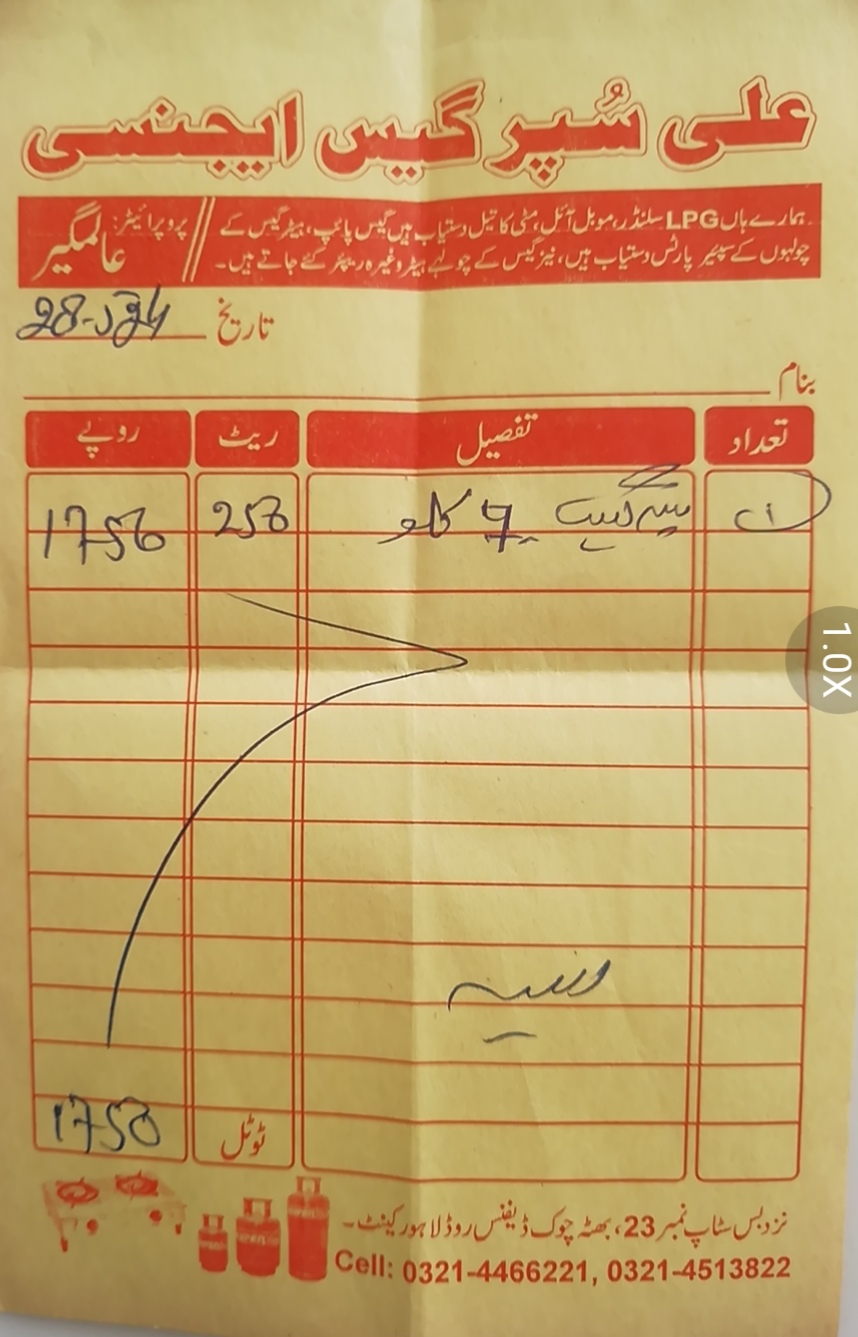 علی سُپر گیس ایجنسی
ہمارے ہاں LPG سلنڈر، موبل آئل، مٹی کا تیل دستیاب ہیں گیس پائپ، ہیٹر گیس کے
چولہوں کے سپئیر پارٹس دستیاب ہیں، نیز گیس کے چولہے ہیٹر وغیرہ ریپئر کئے جاتے ہیں۔
پروپرائیٹر: عالمگیر
تاریخ
بنام
تعداد تفصیل ریٹ روپے
1 7 کلو 250 1750
ٹوٹل 1750
نزد بس سٹاپ نمبر 23، بھٹہ چوک ڈیفنس روڈ لاہور کینٹ۔
Cell: 0321-4466221, 0321-4513822
1.0X